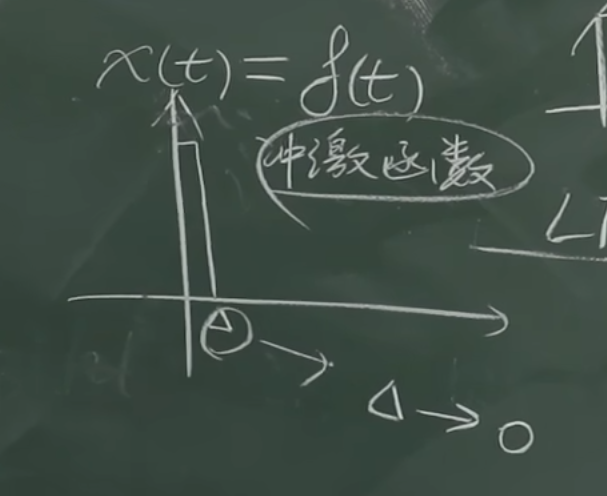 x(t) = δ(t)
冲激函数
Δ
Δ → 0